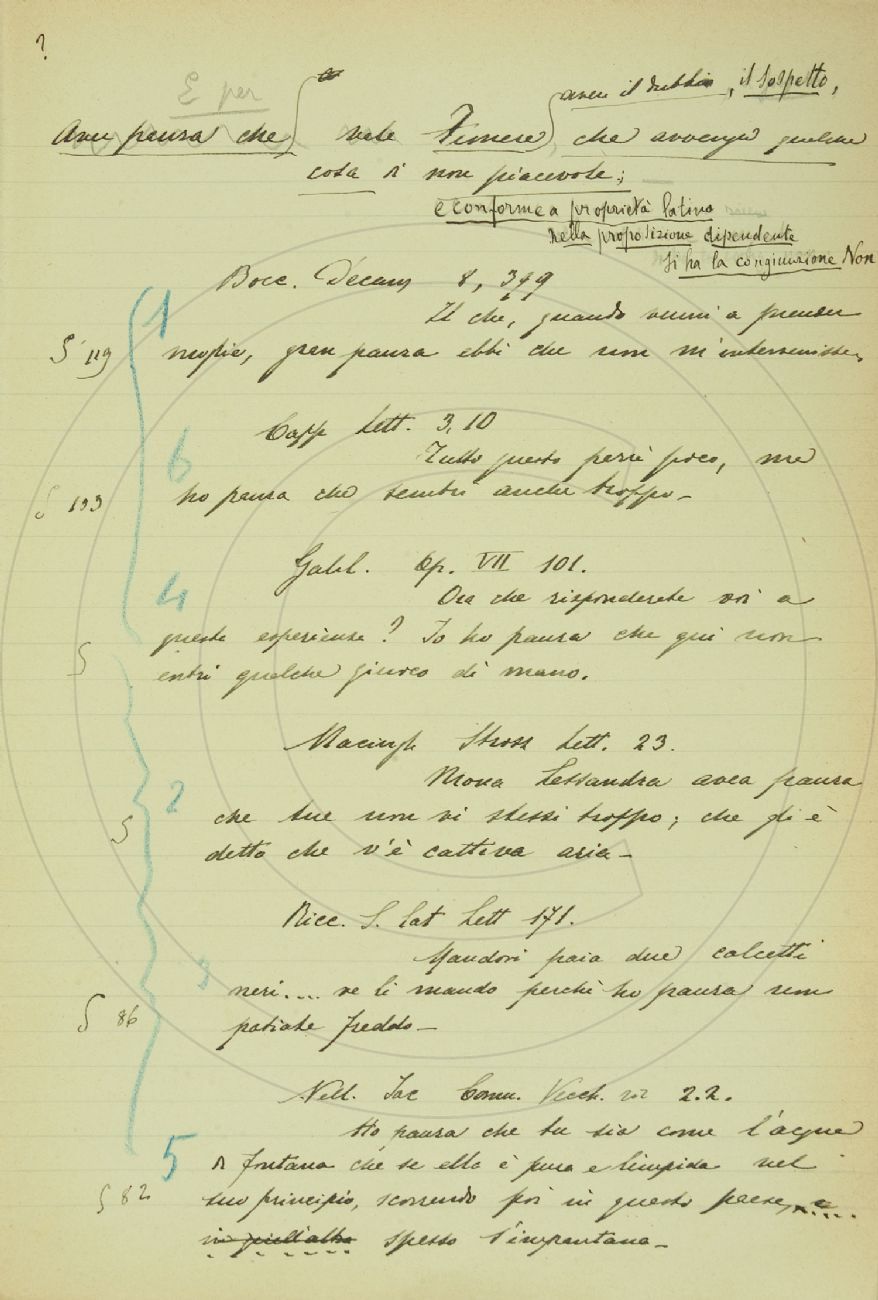 ?
E per
aver il dubbio, il sospetto,
Aver paura che vale Temere che avvenga qualche
cosa di non piacevole;
e conforme a proprietà latina
nella proposizione dipendente
si ha la congiunzione Non
Bocc. Decam 8, 349
1 Il che, quando venni a prender
§ 119 moglie, gran paura ebbi che non m'intervenisse.
Casa Lett. 3, 10
6 Tutto questo perrà poco, me
§ 193 ho paura che sembri anche troppo_
Galil. Op. VII 101.
4 Ora che risponderete voi a
queste esperienze? Io ho paura che qui non
§ entri qualche giuoco di mano.
Macingh Strozz Lett. 23.
2 Mona Lessandra avea paura
§ che tue non vi stessi troppo; che gli è
detto che v'è cattiva aria_
Ricc. S. Cat Lett 171.
3 Mandovi paia due calcetti
neri.... ve li mando perchè ho paura non
§ 86 patiate freddo_
Nell. Iac Comm. Vecch. 2.2.
Ho paura che tu sia come l'acqua
5 di fontana che se ella è pura e limpida nel
§ 82 suo principio, scorrendo poi in questo paese, e
in quell'altro spesso s'impantana_